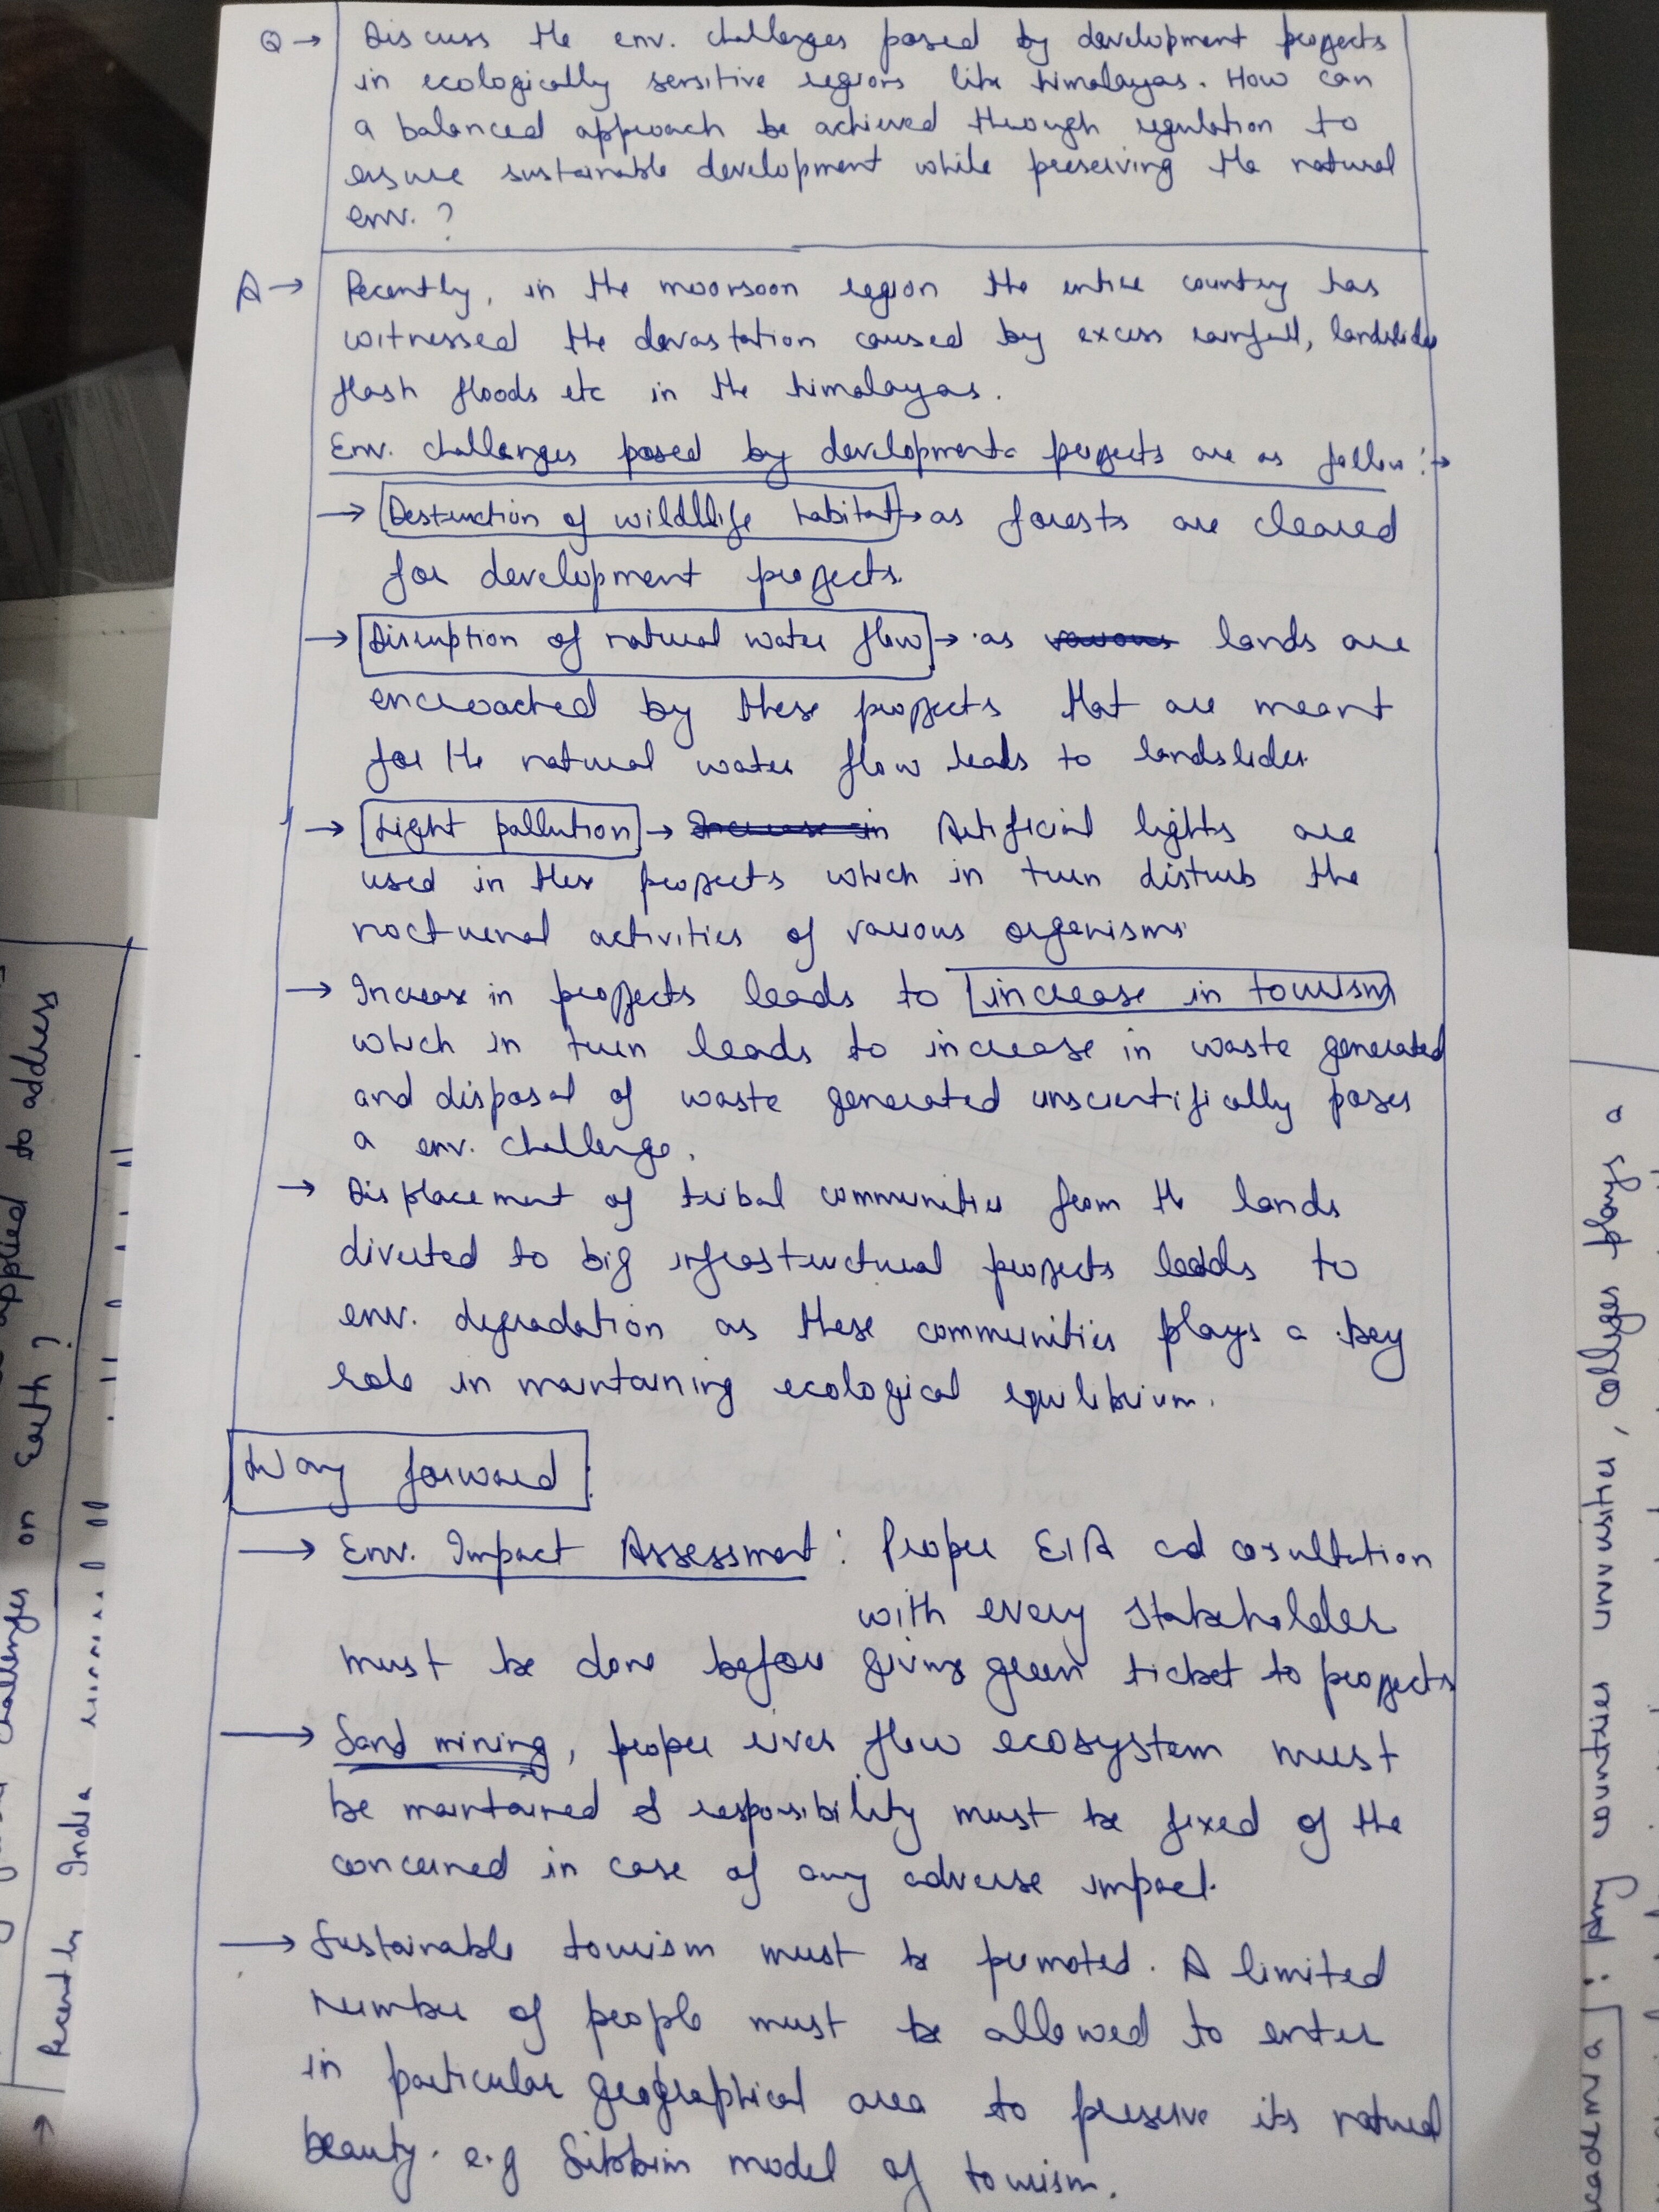 Q → Discuss the env. challenges posed by development projects
in ecologically sensitive regions like himalayas. How can
a balanced approach be achieved through regulation to
ensure sustainable development while preserving the natural
env. ?
A → Recently, in the moonsoon region the entire country has
witnessed the devastation caused by excess rainfall, landslides
flash floods etc in the himalayas.
Env. challenges posed by developments projects are as follow :→
→ Destruction of wildlife habitat → as forests are cleared
for development projects.
→ Disruption of natural water flow → as lands are
encroached by these projects that are meant
for the natural water flow leads to landslides.
→ Light pollution → Artificial lights are
used in these projects which in turn disturb the
nocturnal activities of various organisms.
→ Increase in projects leads to increase in tourism
which in turn leads to increase in waste generated
and disposal of waste generated unscientifically poses
a env. challenge.
→ Displacement of tribal communities from the lands
diverted to big infrastructural projects leads to
env. degradation as these communities plays a key
role in maintaining ecological equilibrium.
Way forward :
→ Env. Impact Assessment : Proper EIA ad cosultation
with every stakeholder
must be done before giving green ticket to projects
→ Sand mining, proper river flow ecosystem must
be maintained & responsibility must be fixed of the
concerned in case of any adverse impact.
→ Sustainable tourism must be promoted. A limited
number of people must be allowed to enter
in particular geographical area to preserve its natural
beauty. e.g Sikkim model of tourism.
applied to address
challenges on Earth ?
Recently India
academia : Many countries universities, colleges plays a